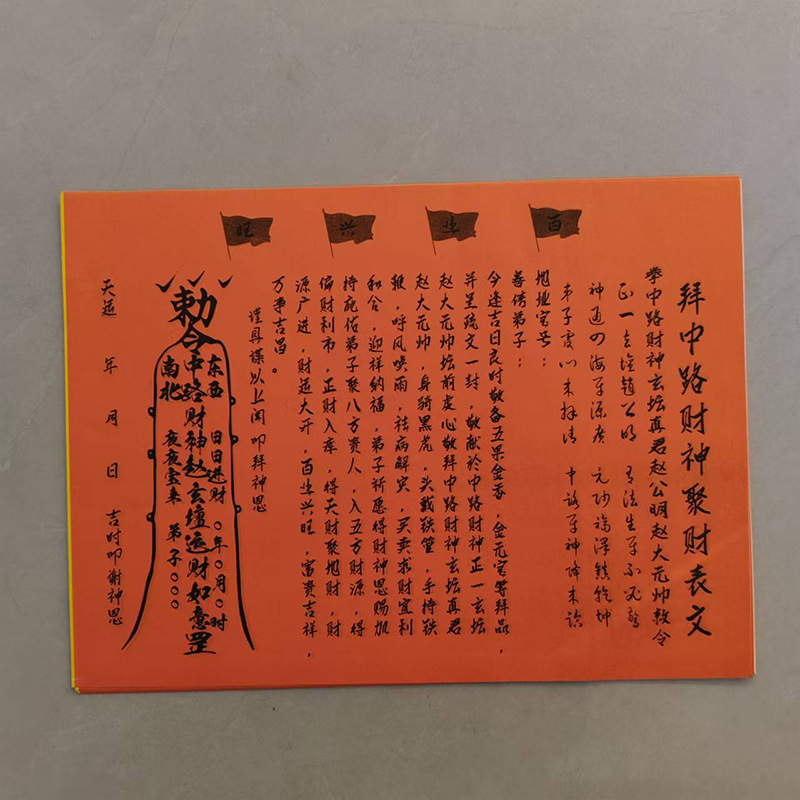 百业兴旺
拜中路财神聚财表文
奉中路财神玄坛真君赵公明赵大元帅敕令
正一玄坛赵公明
神通四海 元帅福泽镇乾坤
弟子虔心来拜请 中路 神降来临
宅号：
善信弟子：
今逢吉日良时敬备五果金香，金元宝等拜品，
并呈疏文一封，敬献於中路财神正一玄坛
赵大元帅坛前虔心敬拜中路财神玄坛真君
赵大元帅，身骑黑虎，头戴铁管，手持铁
鞭，呼风唤雨，祛病解灾，买卖求财宜利
和合，迎祥纳福，弟子祈愿得财神恩赐加
持庇佑弟子聚八方贵人，入五方财源，得
偏财利市，正财入库，得天财聚地财，财
源广进，财运大开，百业兴旺，富贵吉祥，
万事吉昌。
谨具牒以上闻 叩拜神恩
敕令
东西 日日进财 〇年〇月〇时
中路财神赵玄坛运财如意罡
南北 夜夜宝来 弟子〇〇〇
天运 年 月 日 吉时叩谢神恩